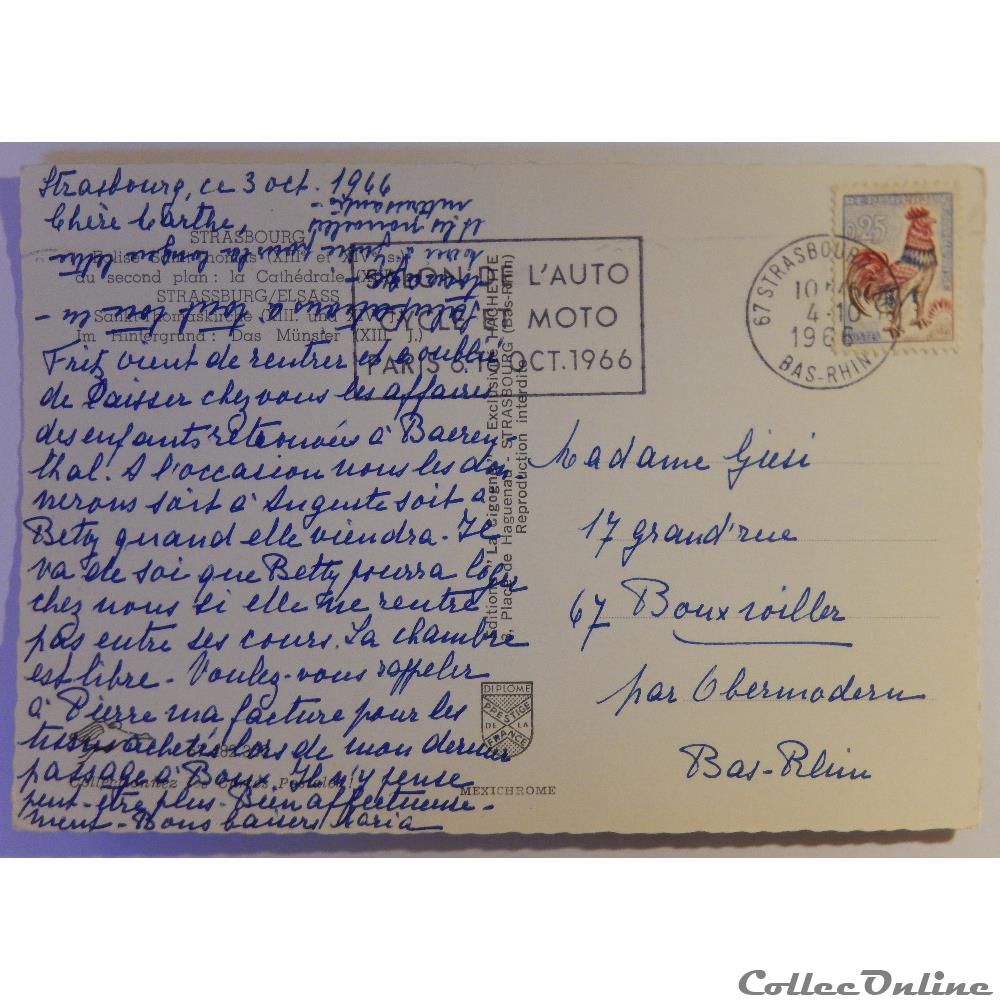 Strasbourg, ce 3 oct. 1966
Chère Marthe,
Fritz vient de rentrer et a oublié
de laisser chez vous les affaires
des enfants retrouvées à Baeren
thal. A l'occasion nous les don
nerons soit à Auguste soit à
Betty quand elle viendra. Il
va de soi que Betty pourra loger
chez nous si elle ne rentre
pas entre ses cours. La chambre
est libre - Voulez-vous rappeler
à Pierre ma facture pour les
tissus achetés lors de mon dernier
passage à Boux. Il n'y pense
peut-être plus. Bien affectueuse-
ment - Bons baisers Maria
pour la longue lettre
et les nouvelles
intéressantes -
STRASBOURG
Eglise St-Thomas (XIII et XIV s.)
au second plan : la Cathédrale
STRASSBURG/ELSASS
Sankt Thomaskirche (XIII. und
Im Hintergrund: Das Münster (XIII. J.)
SALON DE L'AUTO
CYCLE MOTO
PARIS 6.16 OCT. 1966
67 STRASBOURG
4-10
1966
BAS-RHIN
0,25
Editions "La Cigogne" Exclusivité HACHETTE
Place de Haguenau - STRASBOURG (Bas-Rhin)
Reproduction interdite
Madame Giesi
17 grand'rue
67 Bouxwiller
par Obermodern
Bas-Rhin
DIPLOME
PRESTIGE
DE LA
FRANCE
Collectionnez les Cartes Postales
MEXICHROME
CollecOnline